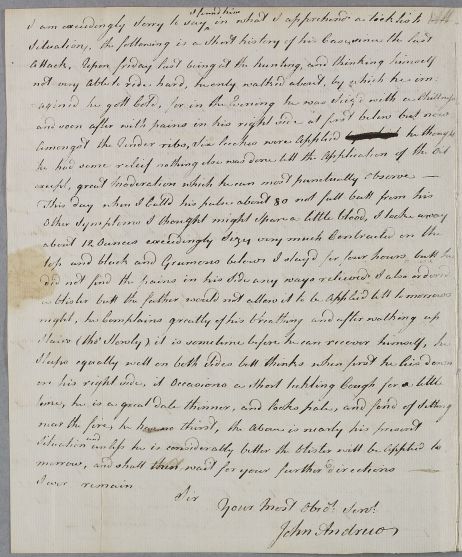 I found him
I am exceedingly Sorry to say in what I apprehend a ticklish
Situation, the following is a Short history of his Case since the last
Attack, Upon friday last being at the hunting, and thinking himself
not very Able to ride hard, he only walked about, by which he im-
agined he gott Cold, for in the Evening he was Seiz'd with a Chillness
and soon after with pains in his right side at first below but now
amongst the Under ribs, Six leeches were Applied he thought
he had some relief nothing else was done till the Application of the
except, great moderation which he can most punctually Observe —
This day when I Call'd his pulse about 80 not full butt from his
Other Symptoms I thought might spare a little blood, I took away
about 12 Ounces exceedingly Sizy very much Contracted on the
top and black and Grumous below I stay'd for four hours, butt he
did not find the pains in his side any ways relieved I also ordered
a blister butt the father would not allow it to be Applied till tomorrow
night, he Complains greatly of his breathing and after walking up
Stairs (tho' Slowly) it is sometime before he can recover himself, he
Sleeps equally well on both Sides butt thinks when first he lies down
on his right side, it Occasions a Short tickling Cough for a little
time, he is a great dale thinner, and looks pale, and fond of sitting
near the fire, he has no thirst, the Above is nearly his present
Situation and unless he is considerably better the blister will be Applied to
morrow, and shall then wait for your further directions —
I ever remain
Sir
Your Most Obed.t Serv.t
John Andrews